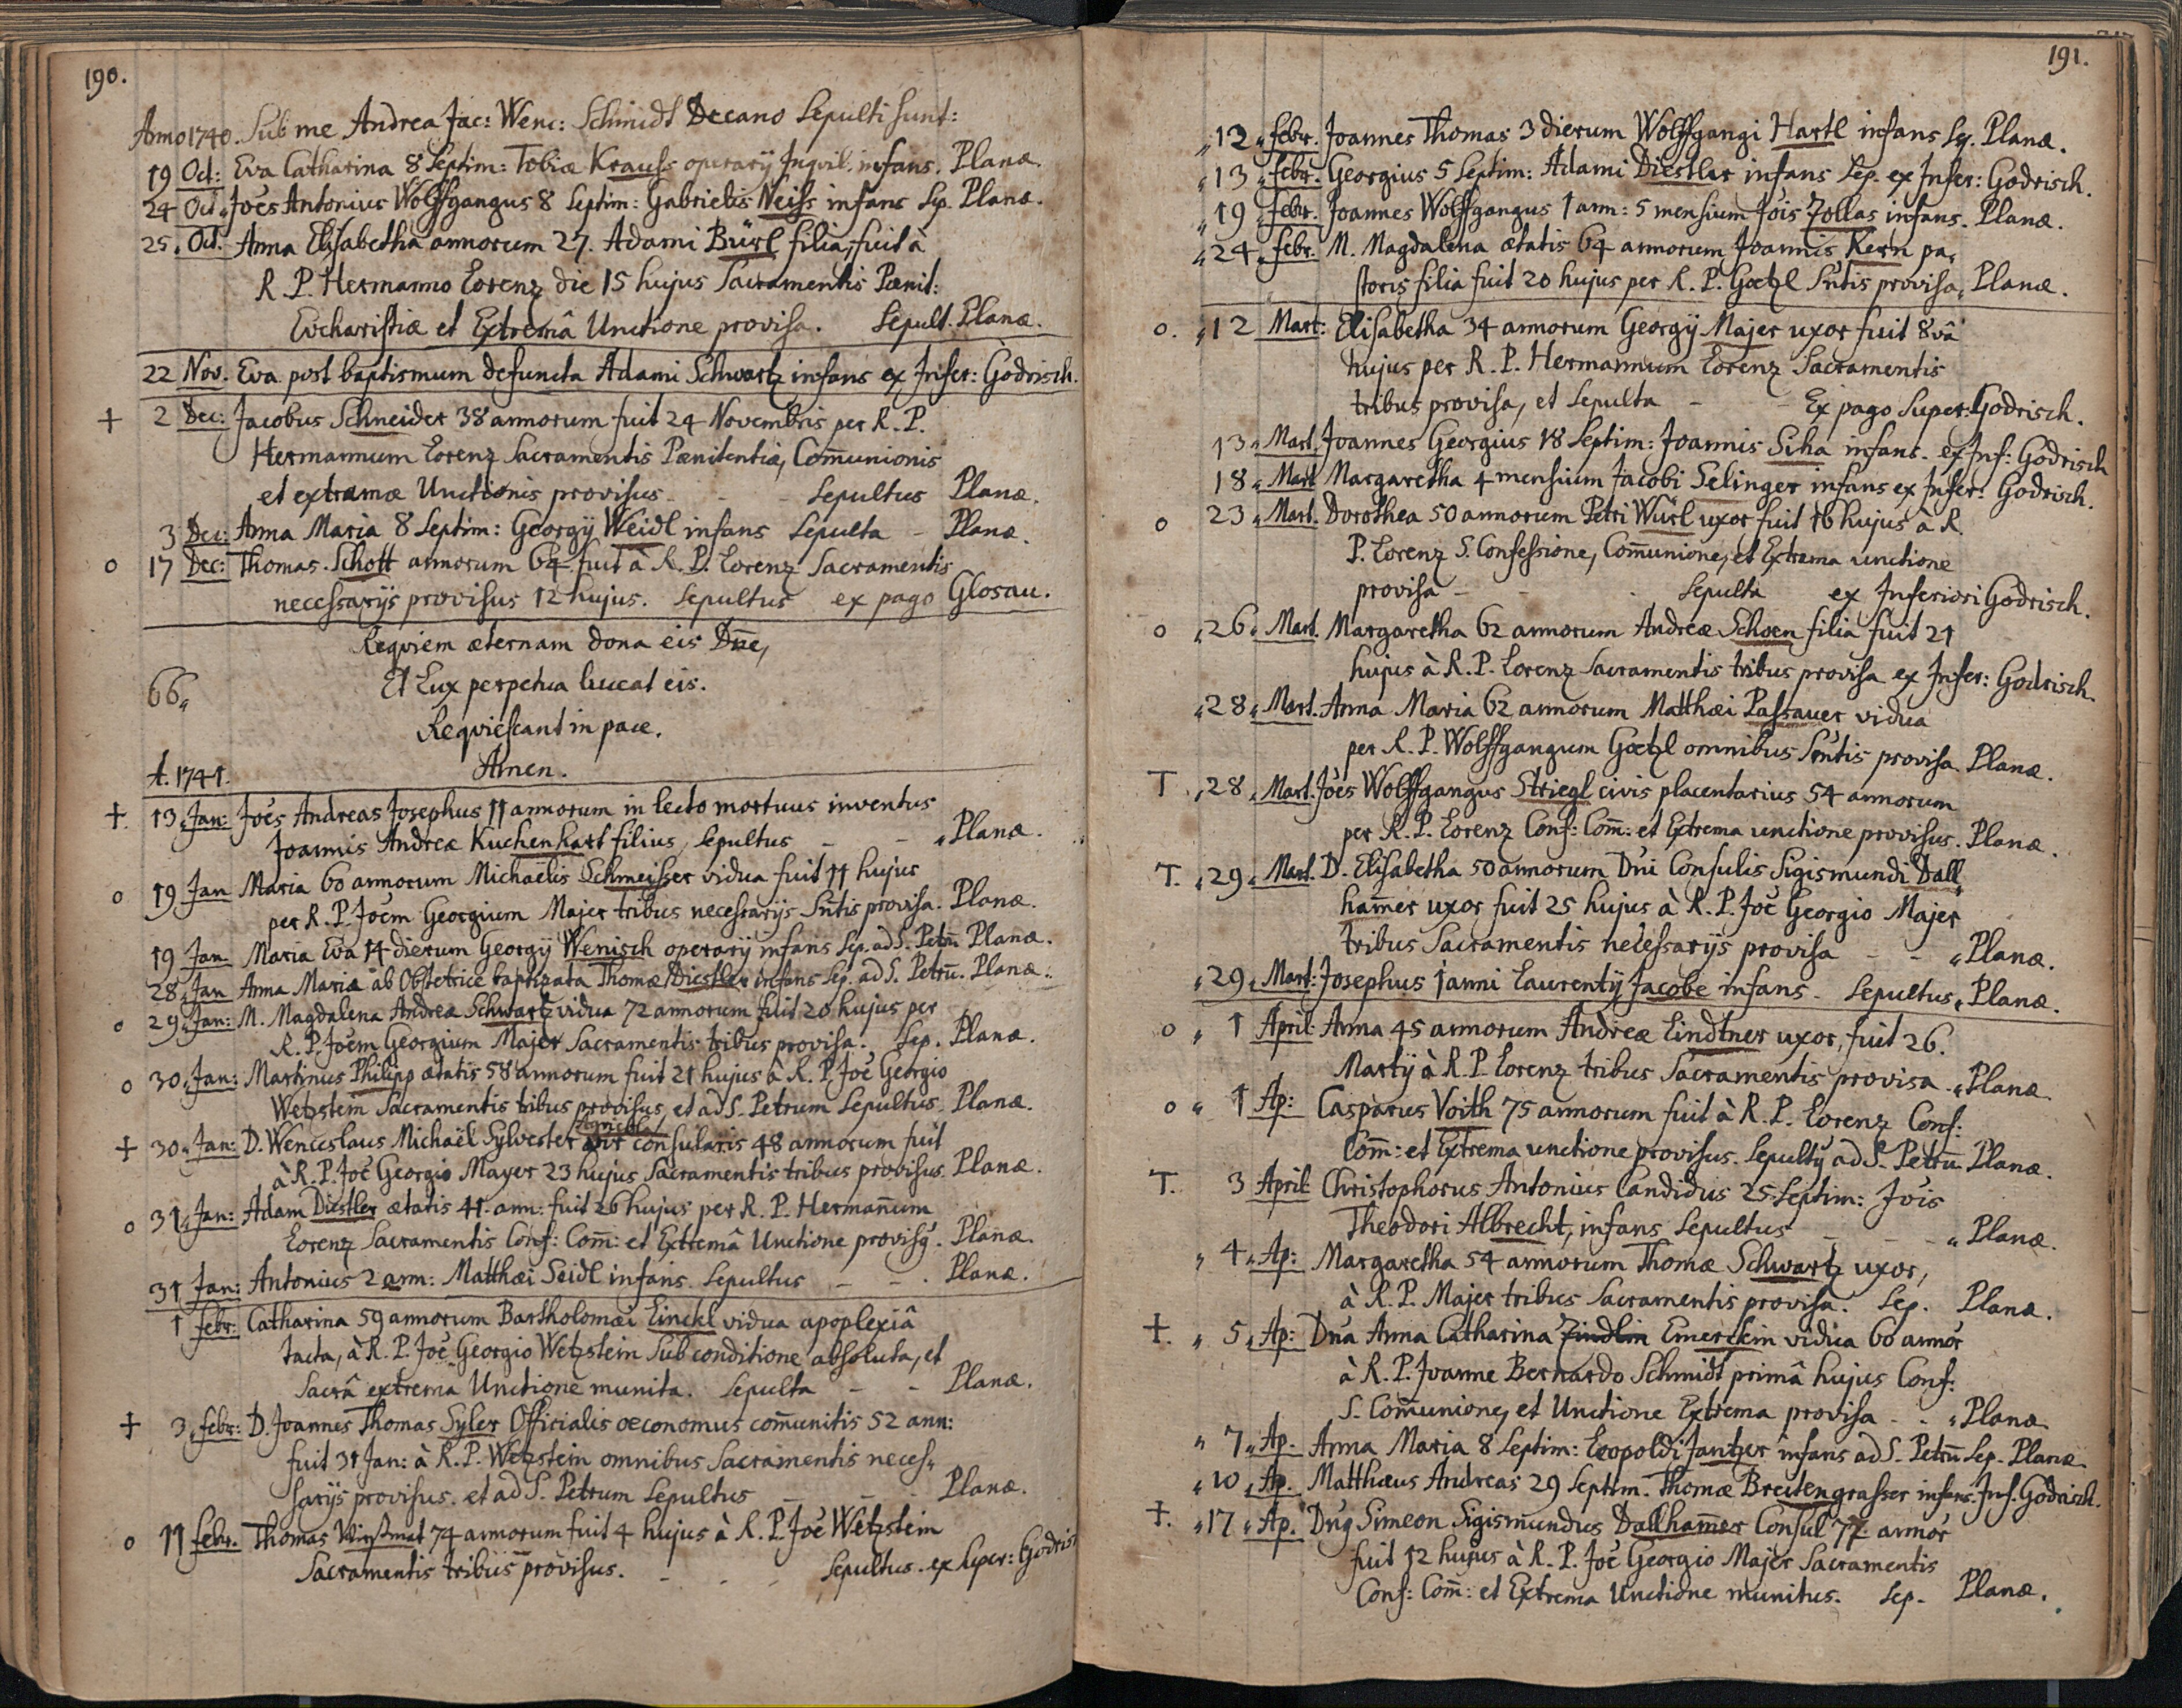 190.
Anno 1740. Sub me Andrea Jac: Wenc: Schmidt Decano Sepulti sunt:
19 Oct: Eva Catharina 8 Septim: Tobiæ Krauss operarij Inqvil. infans. Planæ.
24 Oct. Joês Antonius Wolffgangus 8 Septim: Gabrielis Neiss infans Sep. Planæ.
25. Oct. Anna Elisabetha annorum 27. Adami Bürl filia, fuit à
R. P. Hermanno Lorenz die 15 hujus Sacramentis Pœnit:
Eucharistiæ et Extremâ Unctione provisa. Sepult. Planæ.
22 Nov. Eva post baptismum defuncta Adami Schwartz infans ex Infer: Godrisch.
+ 2 Dec: Jacobus Schneider 38 annorum fuit 24 Novembris per R. P.
Hermannum Lorenz Sacramentis Pœnitentiæ, Com̄unionis
et extremæ Unctionis provisus - - Sepultus Planæ.
3 Dec: Anna Maria 8 Septim: Georgij Weidl infans Sepulta - Planæ.
o 17 Dec: Thomas Schott annorum 64 fuit à R. P. Lorenz Sacramentis
necessarijs provisus 12 hujus. Sepultus ex pago Glosau.
Reqviem æternam dona eis Dn̄e,
66„ Et Lux perpetua luceat eis.
Reqviescant in pace.
Amen.
A. 1741.
+. 13„ Jan: Joês Andreas Josephus 11 annorum in lecto mortuus inventus
Joannis Andreæ Kuchenhart filius, Sepultus - - „Planæ.
o 19 Jan Maria 60 annorum Michaelis Schmeisser vidua fuit 11 hujus
per R. P. Joêm Georgium Majer tribus necessarijs Sn̄tis provisa. Planæ.
19 Jan Maria Eva 14 dierum Georgij Wenisch operarij infans Sep. ad S. Petrū. Planæ.
28„ Jan Anna Maria ab Obstetrice baptizata Thomæ Diestler infans Sep. ad S. Petrū. Planæ.
o 29„ Jan: M. Magdalena Andreæ Schwartz vidua 72 annorum fuit 20 hujus per
R. P. Joêm Georgium Majer Sacramentis tribus provisa. Sep. Planæ.
o 30„ Jan: Martinus Philipp ætatis 58 annorum fuit 21 hujus à R. P. Joê Georgio
Wetzstein Sacramentis tribus provisus, et ad S. Petrum Sepultus. Planæ.
+ 30„ Jan: D. Wenceslaus Michaël Sylvester vir consularis 48 annorum fuit
à R. P. Joê Georgio Mayer 23 hujus Sacramentis tribus provisus. Planæ.
o 31„ Jan: Adam Diestler ætatis 41. ann: fuit 26 hujus per R. P. Herman̄um
Lorenz Sacramentis Conf: Com̄: et Extremâ Unctione provisq. Planæ.
31 Jan: Antonius 2 ann: Matthæi Seidl infans Sepultus - - . Planæ.
1 febr: Catharina 59 annorum Bartholomæi Linckl vidua apoplexiâ
tacta, à R. P. Joê Georgio Wetzstein Sub conditione absoluta, et
Sacrâ extrema Unctione munita. Sepulta - - Planæ.
+ 3„ febr: D. Joannes Thomas Syler Officialis œconomus com̄unitis 52 ann:
fuit 31 Jan: à R. P. Wetzstein omnibus Sacramentis neces„
sarijs provisus. et ad S. Petrum Sepultus - - - Planæ.
o 11 febr. Thomas 74 annorum fuit 4 hujus à R. P. Joê Wetzstein
Sacramentis tribus provisus. - - - Sepultus. ex Super: Godris
191.
„12„ febr. Joannes Thomas 3 dierum Wolffgangi Hartl infans Sep. Planæ.
„13„ febr. Georgius 5 Septim: Adami Diestler infans Sep. ex Infer: Godrisch.
„19„ febr. Joannes Wolffgangus 1 ann: 5 mensium Jôis Zollas infans. Planæ.
„24„ febr. M. Magdalena ætatis 64 annorum Joannis Kern pa„
storis filia fuit 20 hujus per R. P. Goetzl Sn̄tis provisa„ Planæ.
o. „12 Mart: Elisabetha 34 annorum Georgij Majer uxor fuit 8vâ
hujus per R. P. Hermannum Lorenz Sacramentis
tribus provisa, et Sepulta - - Ex pago Super: Godrisch.
13„ Mart. Joannes Georgius 18 Septim: Joannis Siha infans. ex Inf: Godrisch
18„ Mart Margaretha 4 mensium Jacobi Selinger infans ex Infer: Godrisch.
o 23„ Mart. Dorothea 50 annorum Petri Würl uxor fuit 16 hujus à R.
P. Lorenz S. Confessione, Com̄unione, et Extrema unctione
provisa - - - Sepulta ex Inferiori Godrisch.
o „26„ Mart. Margaretha 62 annorum Andreæ Schoen filia fuit 21
hujus à R. P. Lorenz Sacramentis tribus provisa ex Infer: Godrisch.
„28„ Mart. Anna Maria 62 annorum Matthæi Passauer vidua
per R. P. Wolffgangum Goetzl omnibus Sn̄tis provisa Planæ.
T. „28„ Mart. Joês Wolffgangus Striegl civis placentarius 54 annorum
per R. P. Lorenz Conf: Com̄: et Extrema unctione provisus. Planæ.
T. „29„ Mart. D. Elisabetha 50 annorum Dn̄i Consulis Sigismundi Dall„
ham̄er uxor fuit 25 hujus à R. P. Joê Georgio Majer
tribus Sacramentis necessarijs provisa - - „Planæ.
„29„ Mart: Josephus 1 anni Laurentij Jacobe infans - Sepultus„ Planæ.
o „ 1 April: Anna 45 annorum Andreæ Lindtner uxor, fuit 26.
Martij à R. P. Lorenz tribus Sacramentis provisa - „Planæ
o „ 1 Ap: Casparus Voith 75 annorum fuit à R. P. Lorenz Conf:
Com̄: et Extrema unctione provisus. Sepultq ad S. Petrū. Planæ.
T. 3 April Christophorus Antonius Candidus 25 Septim: Jôis
Theodori Albrecht, infans Sepultus - - - „Planæ.
„ 4„ Ap: Margaretha 54 annorum Thomæ Schwartz uxor,
à R. P. Majer tribus Sacramentis provisa. Sep. Planæ.
+. „ 5„ Ap: Dn̄a Anna Catharina Zindlin Emerckin vidua 60 annôr
à R. P. Joanne Bernardo Schmidt primâ hujus Conf:
S. Com̄unione, et Unctione Extrema provisa - - „Planæ
„ 7„ Ap. Anna Maria 8 Septim: Leopoldi Jantzer infans ad S. Petrū Sep. Planæ.
„10„ Ap. Matthæus Andreas 29 Septim. Thomæ Breitengrasser infans. Inf. Godrisch.
+. „17„ Ap. Dn̄q Simeon Sigismundus Dallham̄er Consul annôr
fuit 12 hujus à R. P. Joê Georgio Majer Sacramentis
Conf: Com̄: et Extrema Unctione munitus. Sep. Planæ.